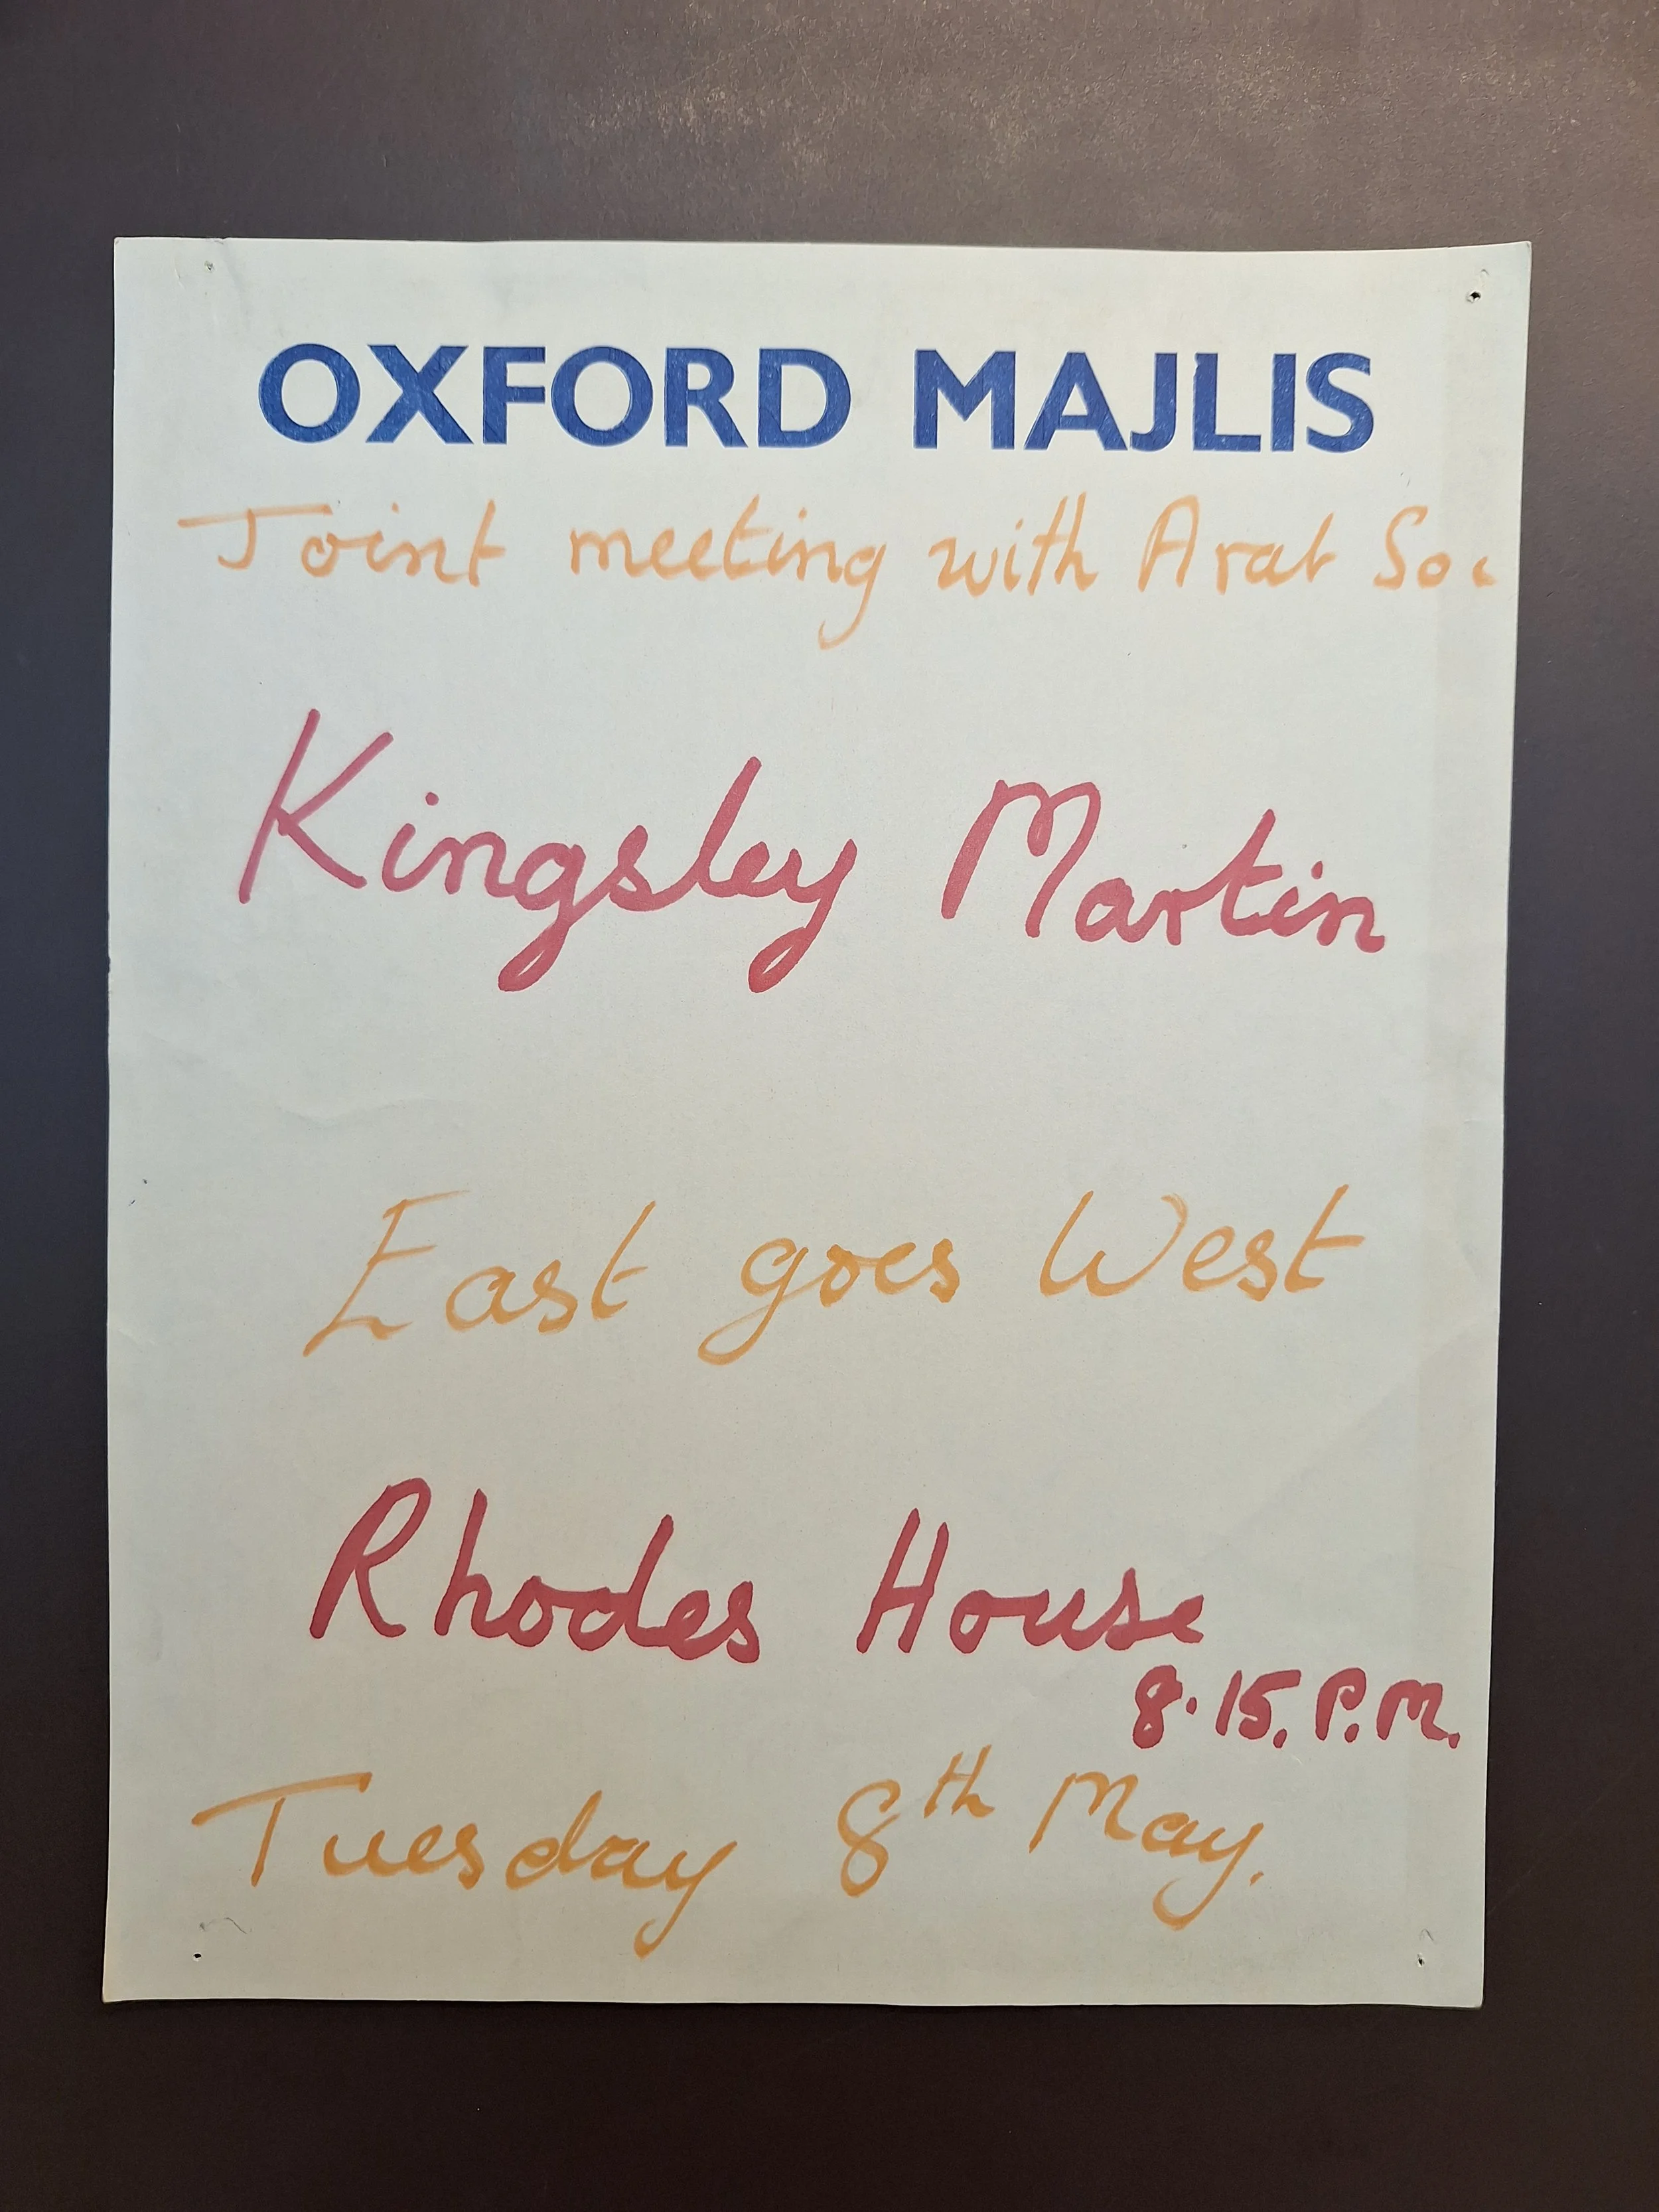 OXFORD MAJLIS
Joint meeting with Arab Soc
Kingsley Martin
East goes West
Rhodes House
8.15. P.M.
Tuesday 8th May.